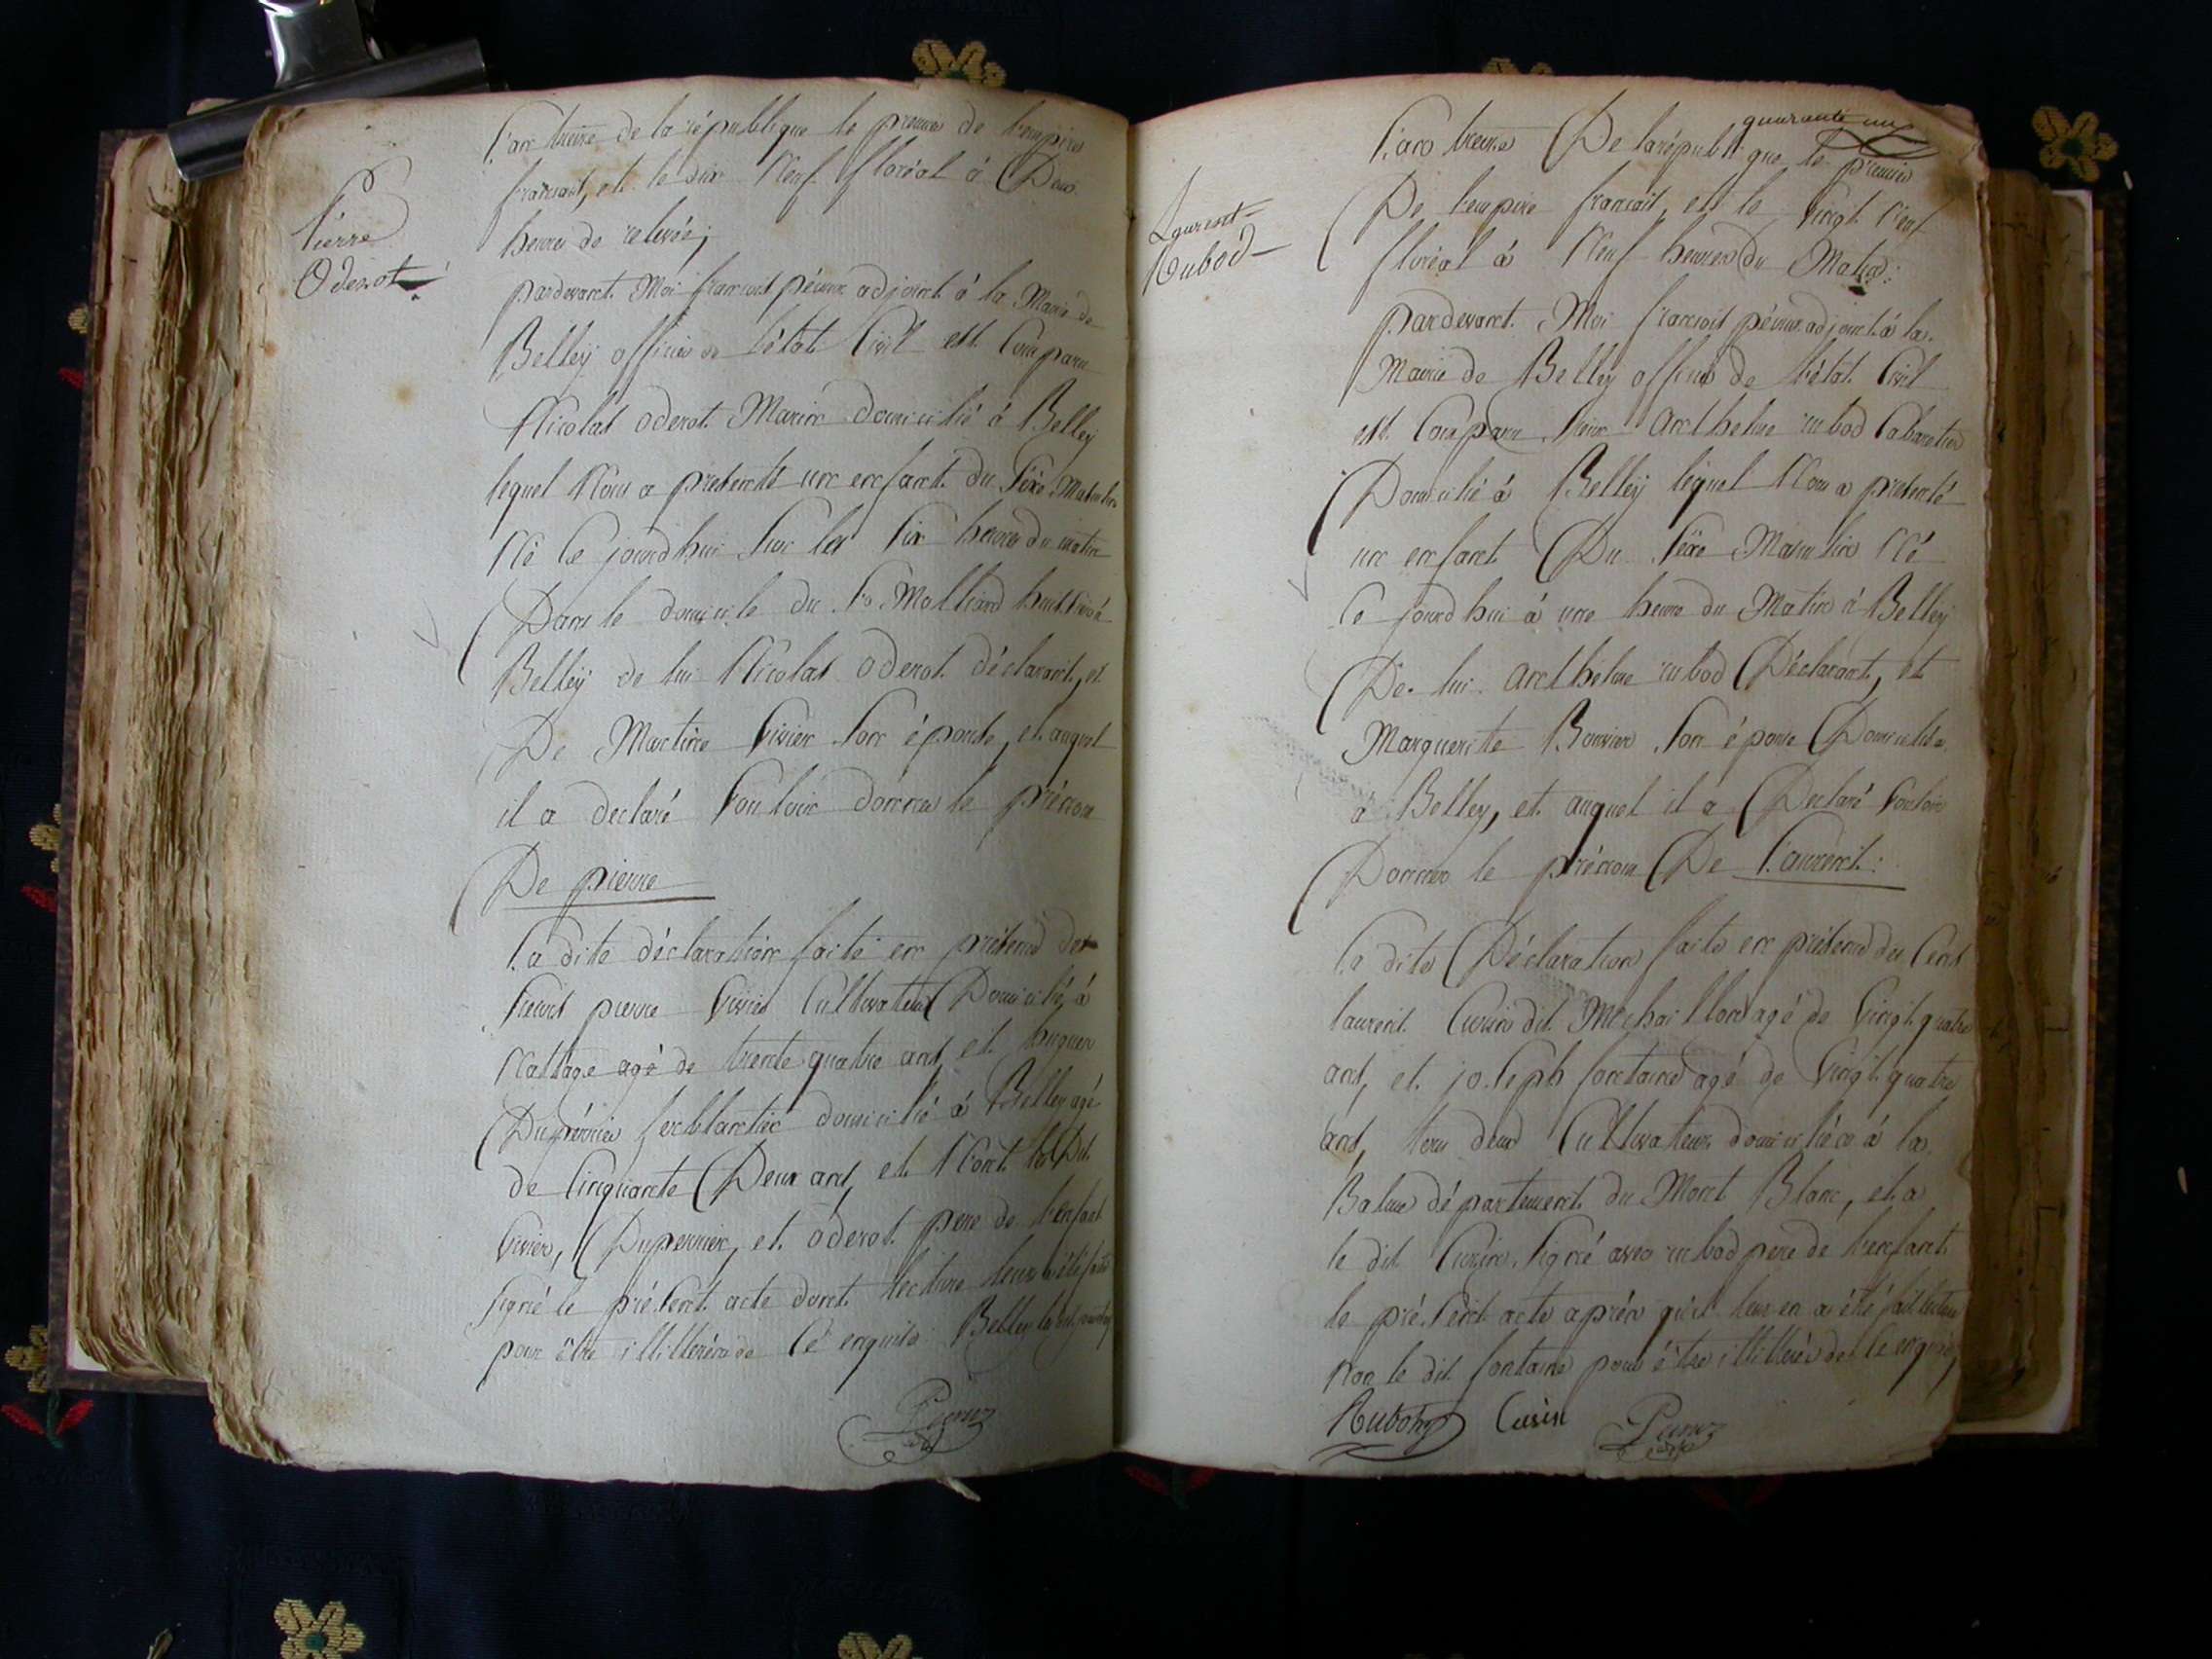 Pierre
Oderot
L'an treize de la république le premier de l'empire
francait, et le dix Neuf floréal à Deux
heures de relevée;
pardevant Moi francoit péruiz adjoint à la Mairie de
Belley officier de l'état Civil est Comparu
Nicolas oderot Marin domicilié à Belley
lequel Nous a presenté un enfant du Sexe Masculin
Né Ce jourdhui Sur les Six heures du matin
Dans le domicile du Sr Molliard huissier à
Belley de lui Nicolas oderot déclarant, et
De Martine Vivier Son épouse, et auquel
il a declaré Vouloir donner le prénom
De pierre
La dite déclaration faite en présence des
Sieurs pierre Vivier Cultivateur Domicilié à
Nattage agé de trente quatre ans, et huguer
Dupérrier ferblantier domicilié à Belley agé
de Cinquante Deux ans, et N'ont les Dit
Vivier, Duperrier, et oderot pere de l'enfant
signé le présent acte dont lecture leur a été faite
pour être illitterés de Ce enquis Belley les dit jour
Peruiz
quarante un
Laurent
Rubod
L'an treize De la république le premier
De l'empire francait, et le Vingt Neuf
floréal à Neuf heures du Matin:
pardevant Moi francoit péruiz adjoint à la
Mairie de Belley officier de l'état Civil
est Comparu Sieur Anthelme rubod Cabaretier
Domicilié à Belley lequel Nous a presenté
un enfant Du Sexe Masculin Né
Ce jourdhui à une heure du Matin à Belley
De lui Anthelme rubod Déclarant, et
Marguerite Bouvier Son épouse Domiciliée
à Belley, et auquel il a Declaré Vouloir
Donner le prénom De Laurent:
La dite Déclaration faite en présence des
laurent Cusin dit Michaillon agé de Vingt quatre
ans, et joseph fontaine agé de Vingt quatre
ans, tous deux Cultivateurs domiciliés à la
Balme département du Mont Blanc, et a
le dit Cusin Signé avec rubod pere de l'enfant
le présent acte aprés qu'il leur en a été fait lecture
Non le dit fontaine pour être illitteré de Ce enquis,
Rubod Cusin Peruiz